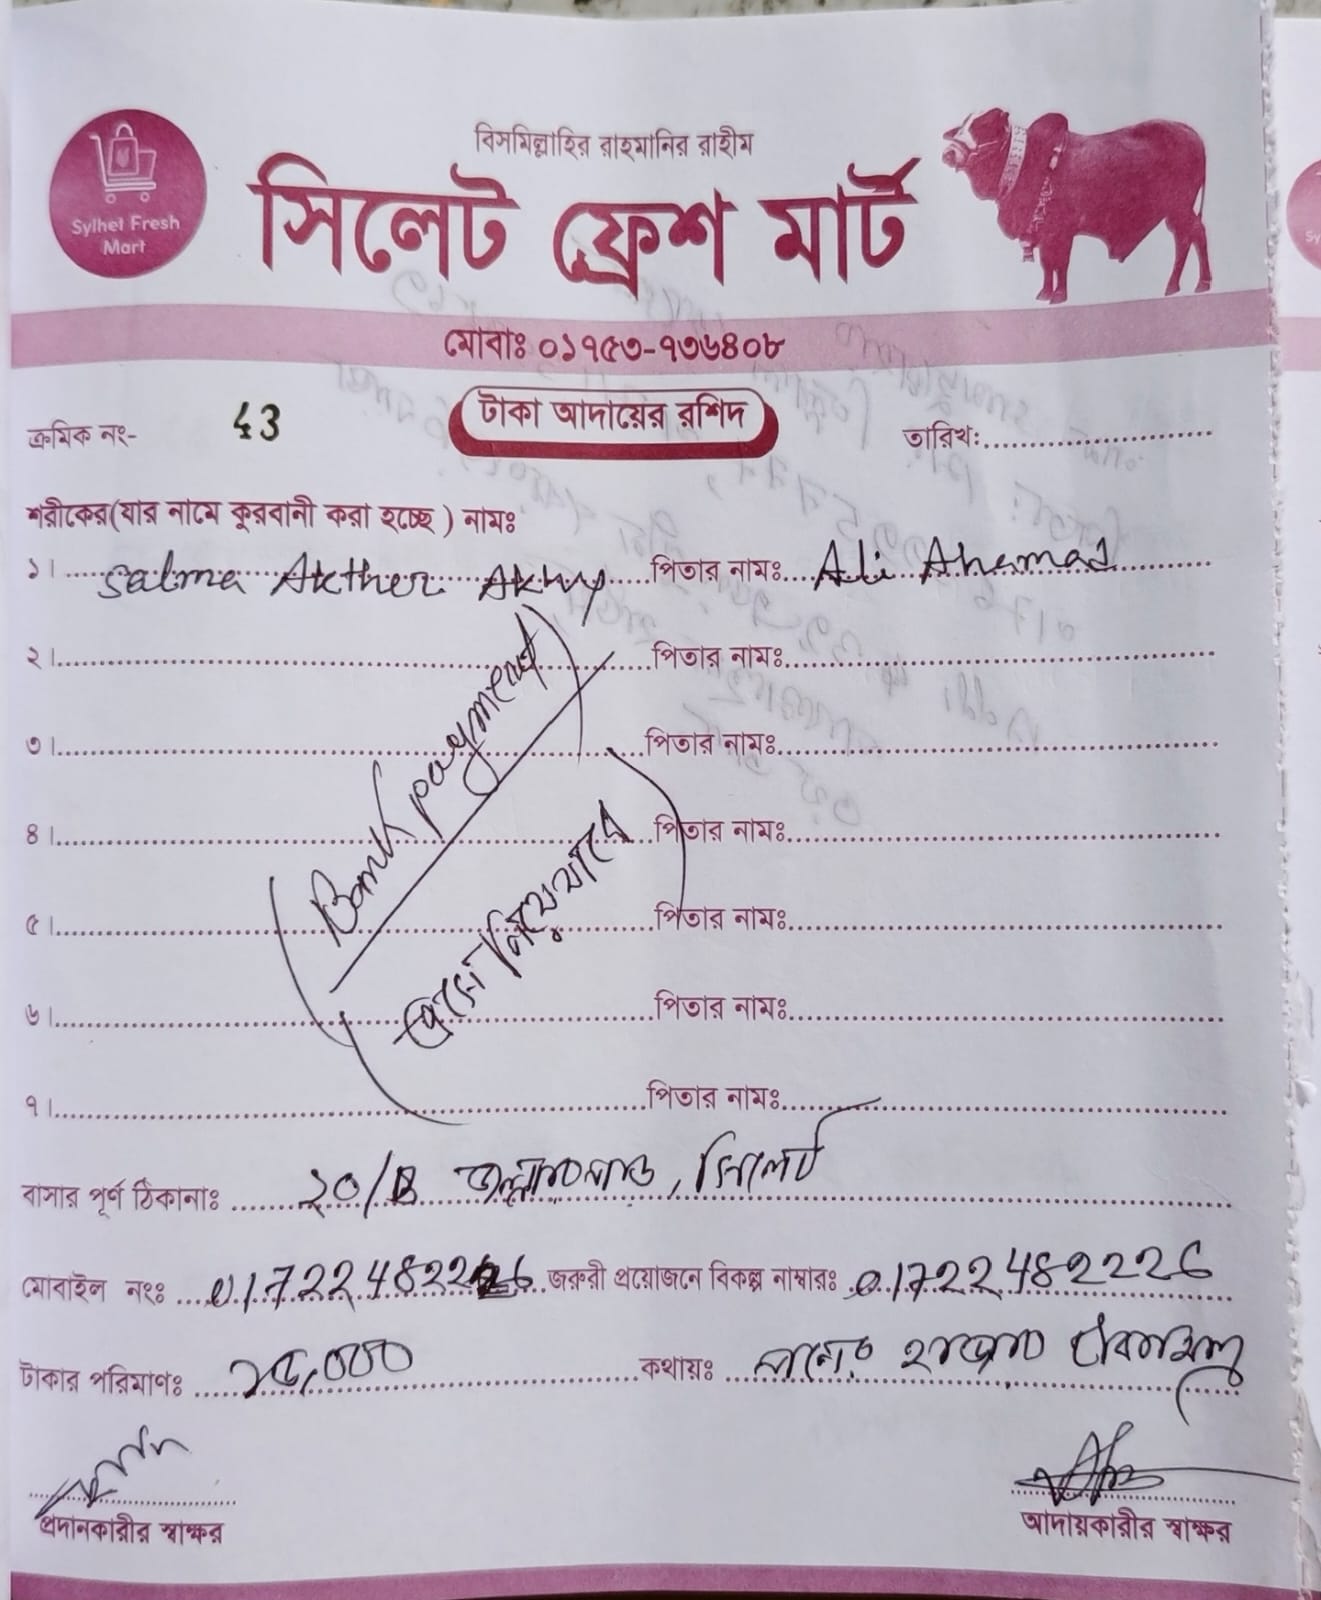 বিসমিল্লাহির রাহমানির রাহীম
Sylhet Fresh
Mart
সিলেট ফ্রেশ মার্ট
মোবাঃ ০১৭৫৩-৭৩৬৪০৮
টাকা আদায়ের রশিদ
ক্রমিক নং- 43
তারিখ:
শরীকের(যার নামে কুরবানী করা হচ্ছে ) নামঃ
১। Salma Akther Akhy পিতার নামঃ Ali Ahemad
২। পিতার নামঃ
৩। পিতার নামঃ
৪। পিতার নামঃ
৫। পিতার নামঃ
৬। পিতার নামঃ
৭। পিতার নামঃ
(Bank payment)
(এসে নিয়ে যাবে)
বাসার পূর্ণ ঠিকানাঃ ২০/B , সিলেট
মোবাইল নংঃ 01722482226 জরুরী প্রয়োজনে বিকল্প নাম্বারঃ 01722482226
টাকার পরিমাণঃ ১৫,০০০ কথায়ঃ পনের হাজার টাকা মাত্র
প্রদানকারীর স্বাক্ষর
আদায়কারীর স্বাক্ষর